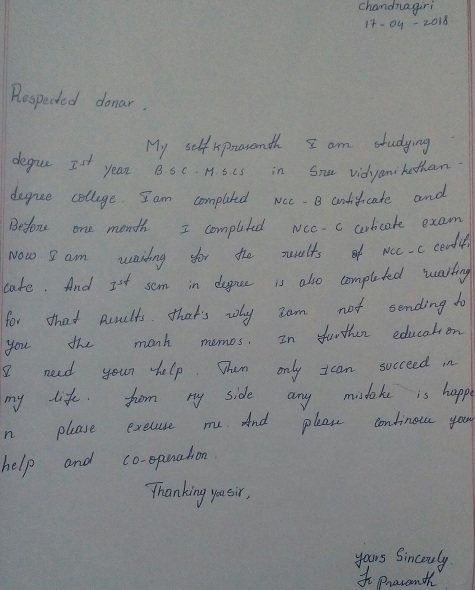 Chandragiri
17-04-2018
Respected donar.
My self K prasanth I am studying
degree Ist year BSC.MSCS in Sree Vidyanikethan
degree college. I am completed NCC-B certificate and
Before one month I completed NCC-C certicate exam
Now I am waiting for the results of NCC-C certifi
cate. And Ist sem in degree is also completed waiting
for that Results. that's why Iam not sending to
you the mark memos. In further education
I need your help. Then only Ican succeed in
my life. from My side any mistake is happe
n please execuse me. And please continoue your
help and co-operation.
Thanking you sir,
yours Sincerely
K Prasanth